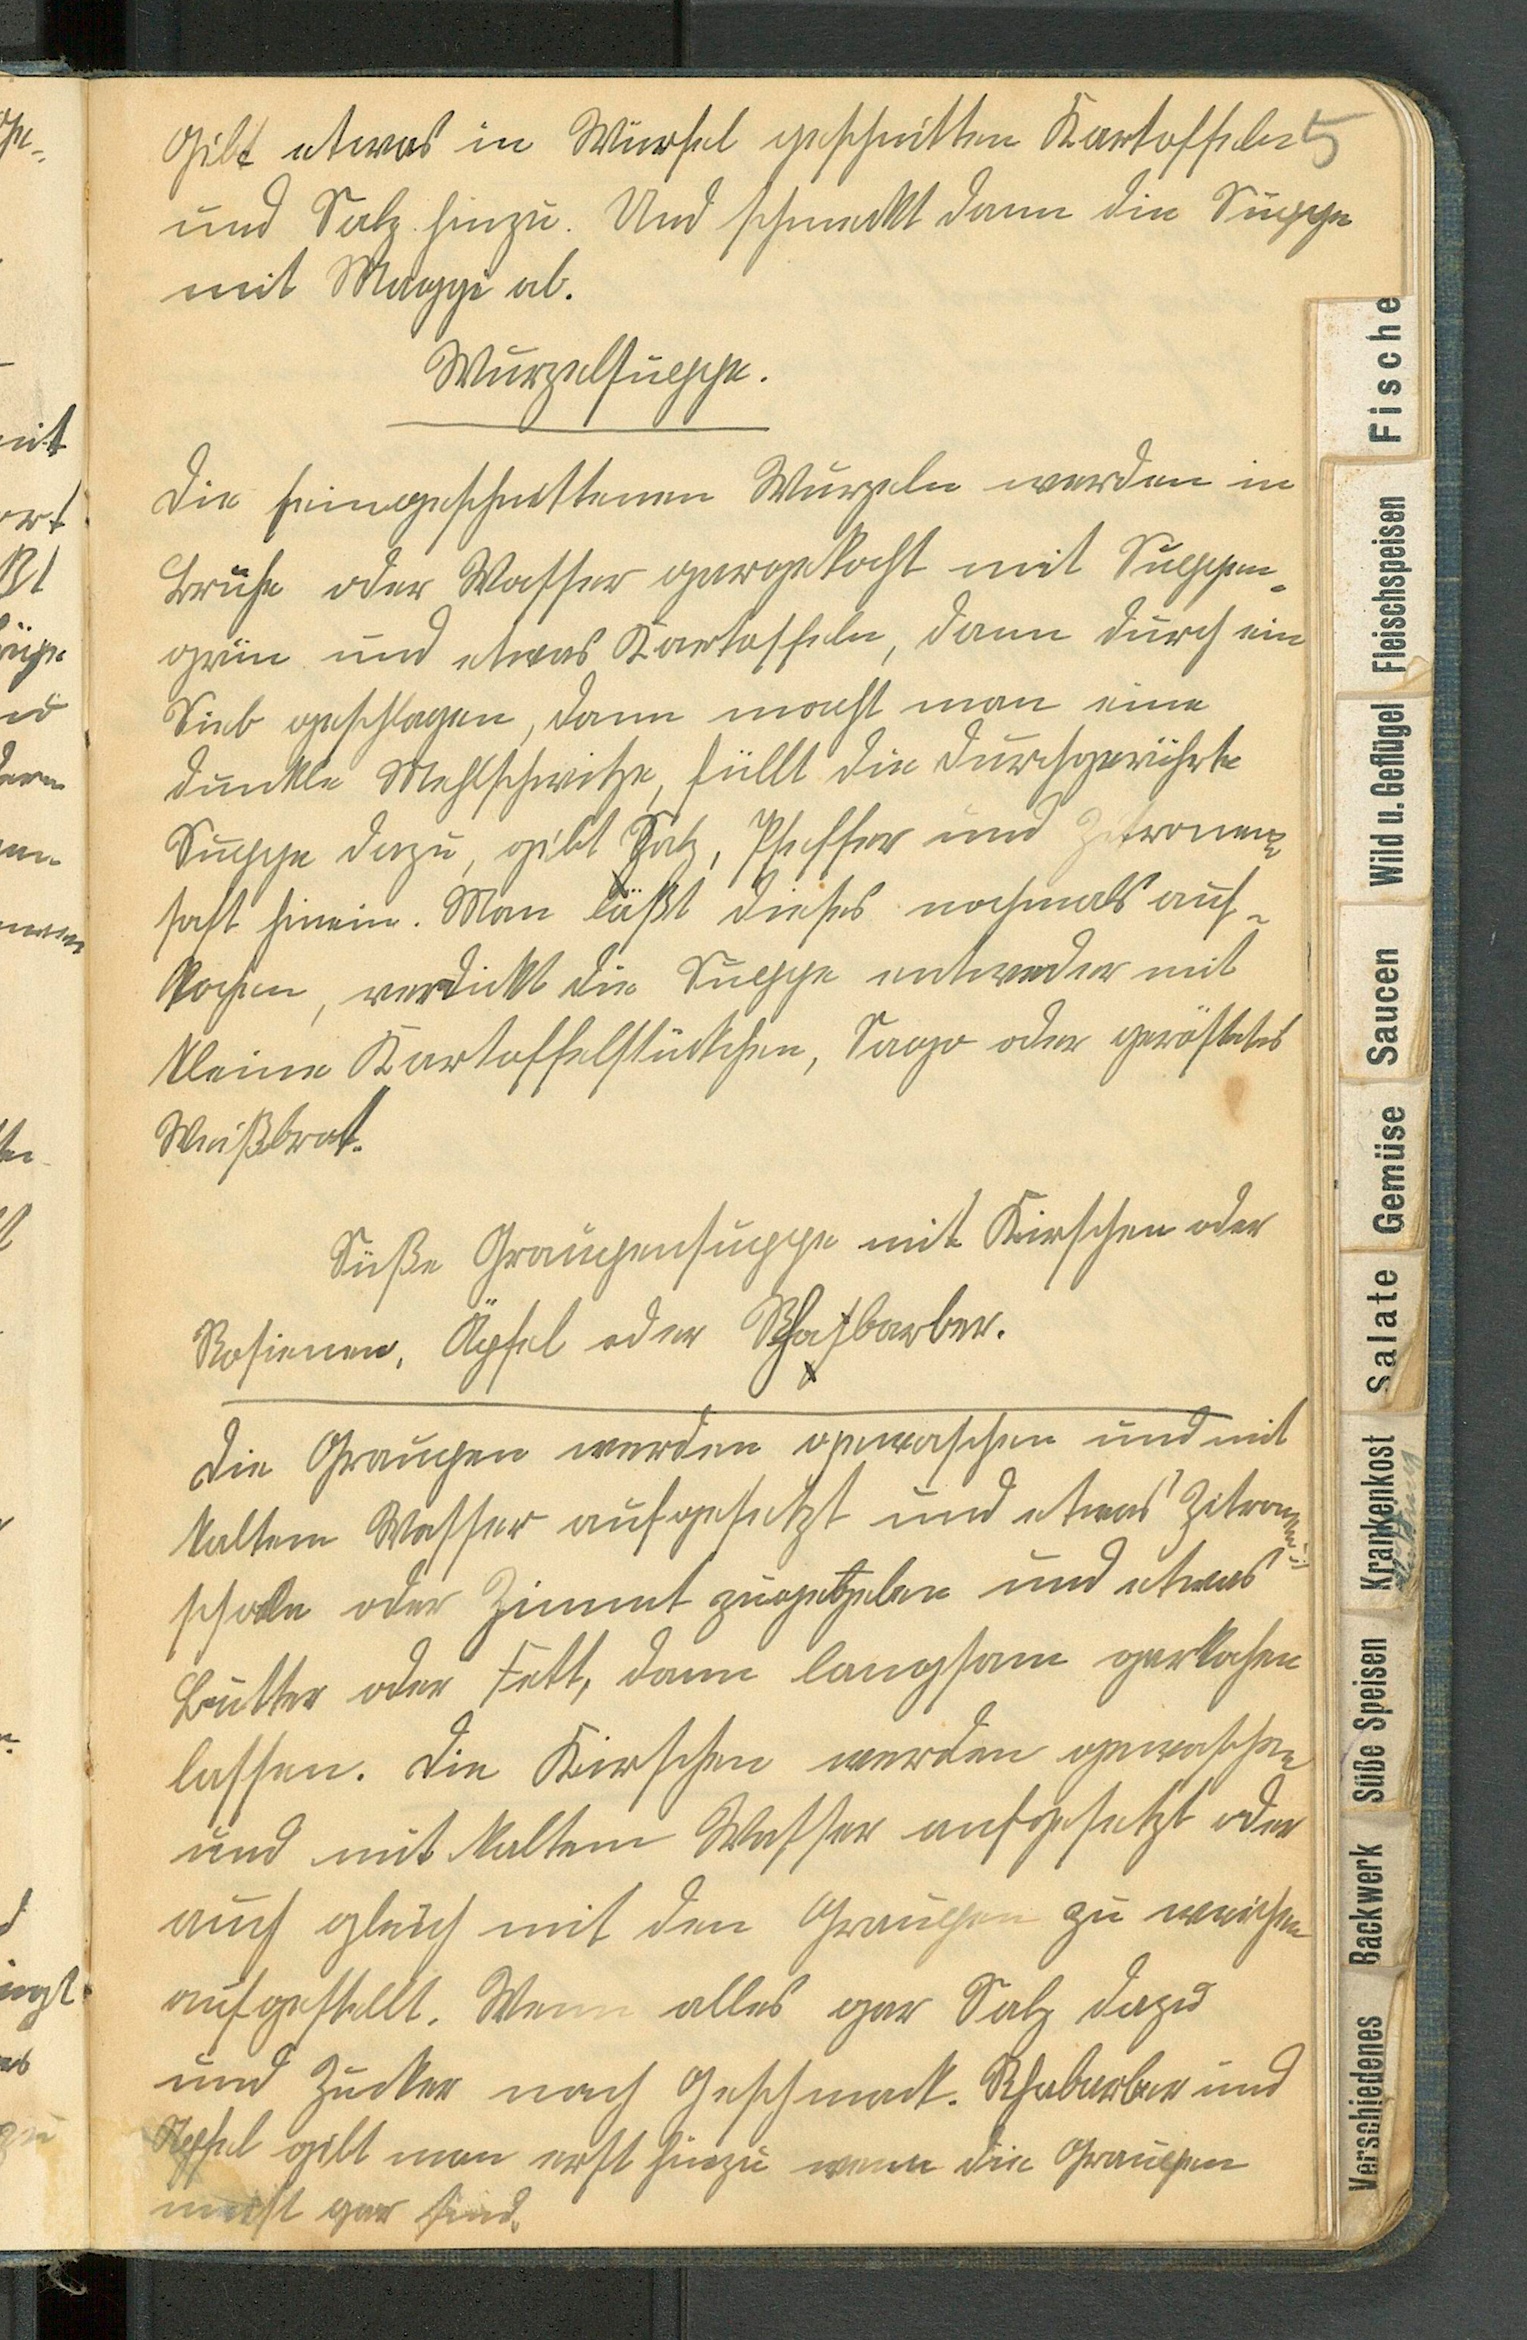 Gibt etwas in Würfel geschnitten Kartoffeln 5
und Salz hinzu. Und schmeckt dann die Suppe
mit Maggi ab.
Wurzelsuppe.
Die feingeschnittenen Wurzeln werden in
Brühe oder Wasser gargekocht mit Suppen-
grün und etwas Kartoffeln, dann durch ein
Sieb geschlagen, dann macht man eine
dunkle Mehlschwitze, füllt die durchgerührte
Suppe dazu, gibt Salz, Pfeffer und Zitronen-
saft hinein. Man läßt dieses nochmals auf-
kochen, verdickt die Suppe entweder mit
kleine Kartoffelstückchen, Sago oder geröstetes
Weißbrot.
Süße Graupensuppe mit Kirschen oder
Rosienen, Äpfel oder Rhabarber.
Die Graupen werden gewaschen und mit
kaltem Wasser aufgesetzt und etwas Zitronen-
schale oder Zimmt zugegeben und etwas
Butter oder Fett, dann langsam garkochen
lassen. Die Kirschen werden gewaschen
und mit kaltem Wasser aufgesetzt oder
auch gleich mit den Graupen zu weichen
aufgestellt. Wenn alles gar Salz dazu
und Zucker nach Geschmack. Rhabarber und
Äpfel gibt man erst hinzu wenn die Graupen
meist gar sind.
Fische
Fleischspeisen
Wild u. Geflügel
Saucen
Gemüse
Salate
Krankenkost
Süße Speisen
Backwerk
Verschiedenes